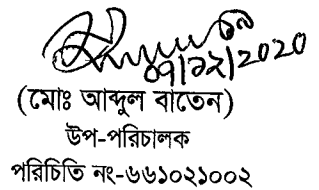 ০৭/১২/২০২০
(মোঃ আব্দুল বাতেন)
উপ-পরিচালক
পরিচিতি নং-৬৬১০২১০০২